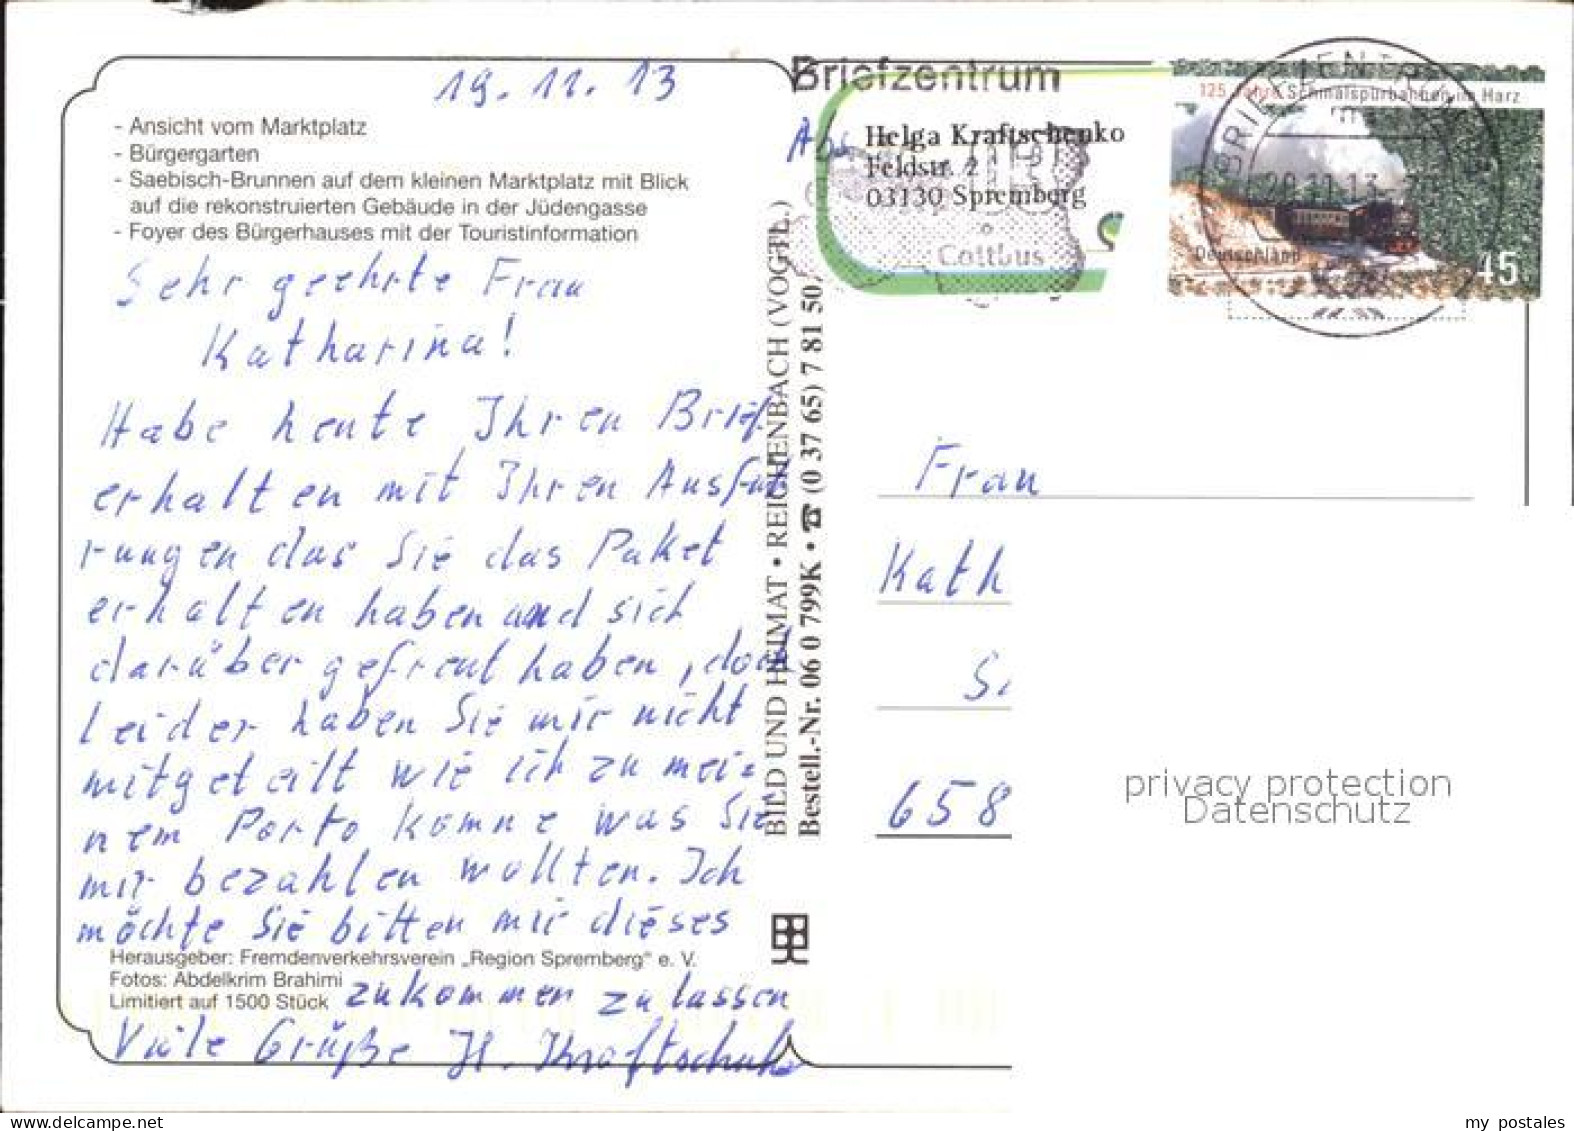 19.11.13
- Ansicht vom Marktplatz
- Bürgergarten
- Saebisch-Brunnen auf dem kleinen Marktplatz mit Blick
auf die rekonstruierten Gebäude in der Jüdengasse
- Foyer des Bürgerhauses mit der Touristinformation
Sehr geehrte Frau
Katharina!
Habe heute Ihren Brief
erhalten mit Ihren Ausfüh
rungen das Sie das Paket
erhalten haben und sich
darüber gefreut haben, doch
leider haben Sie mir nicht
mitgeteilt wie ich zu mei=
nem Porto komme was Sie
mir bezahlen wollten. Ich
möchte Sie bitten mir dieses
Herausgeber: Fremdenverkehrsverein „Region Spremberg" e. V.
Fotos: Abdelkrim Brahimi
Limitiert auf 1500 Stück
zukommen zu lassen
Viele Grüße H. Kraftschenko
BILD UND HEIMAT • REICHENBACH (VOGTL.)
Bestell.-Nr. 06 0 799K • ☎ (0 37 65) 7 81 50
Briefzentrum
Abs
Helga Kraftschenko
Feldstr. 2
03130 Spremberg
Cottbus
125 Jahre Schmalspurbahnen im Harz
Deutschland
45
BRIEFZENTRUM
20.11.13
Frau
Kath
S
658
privacy protection
Datenschutz
my postales